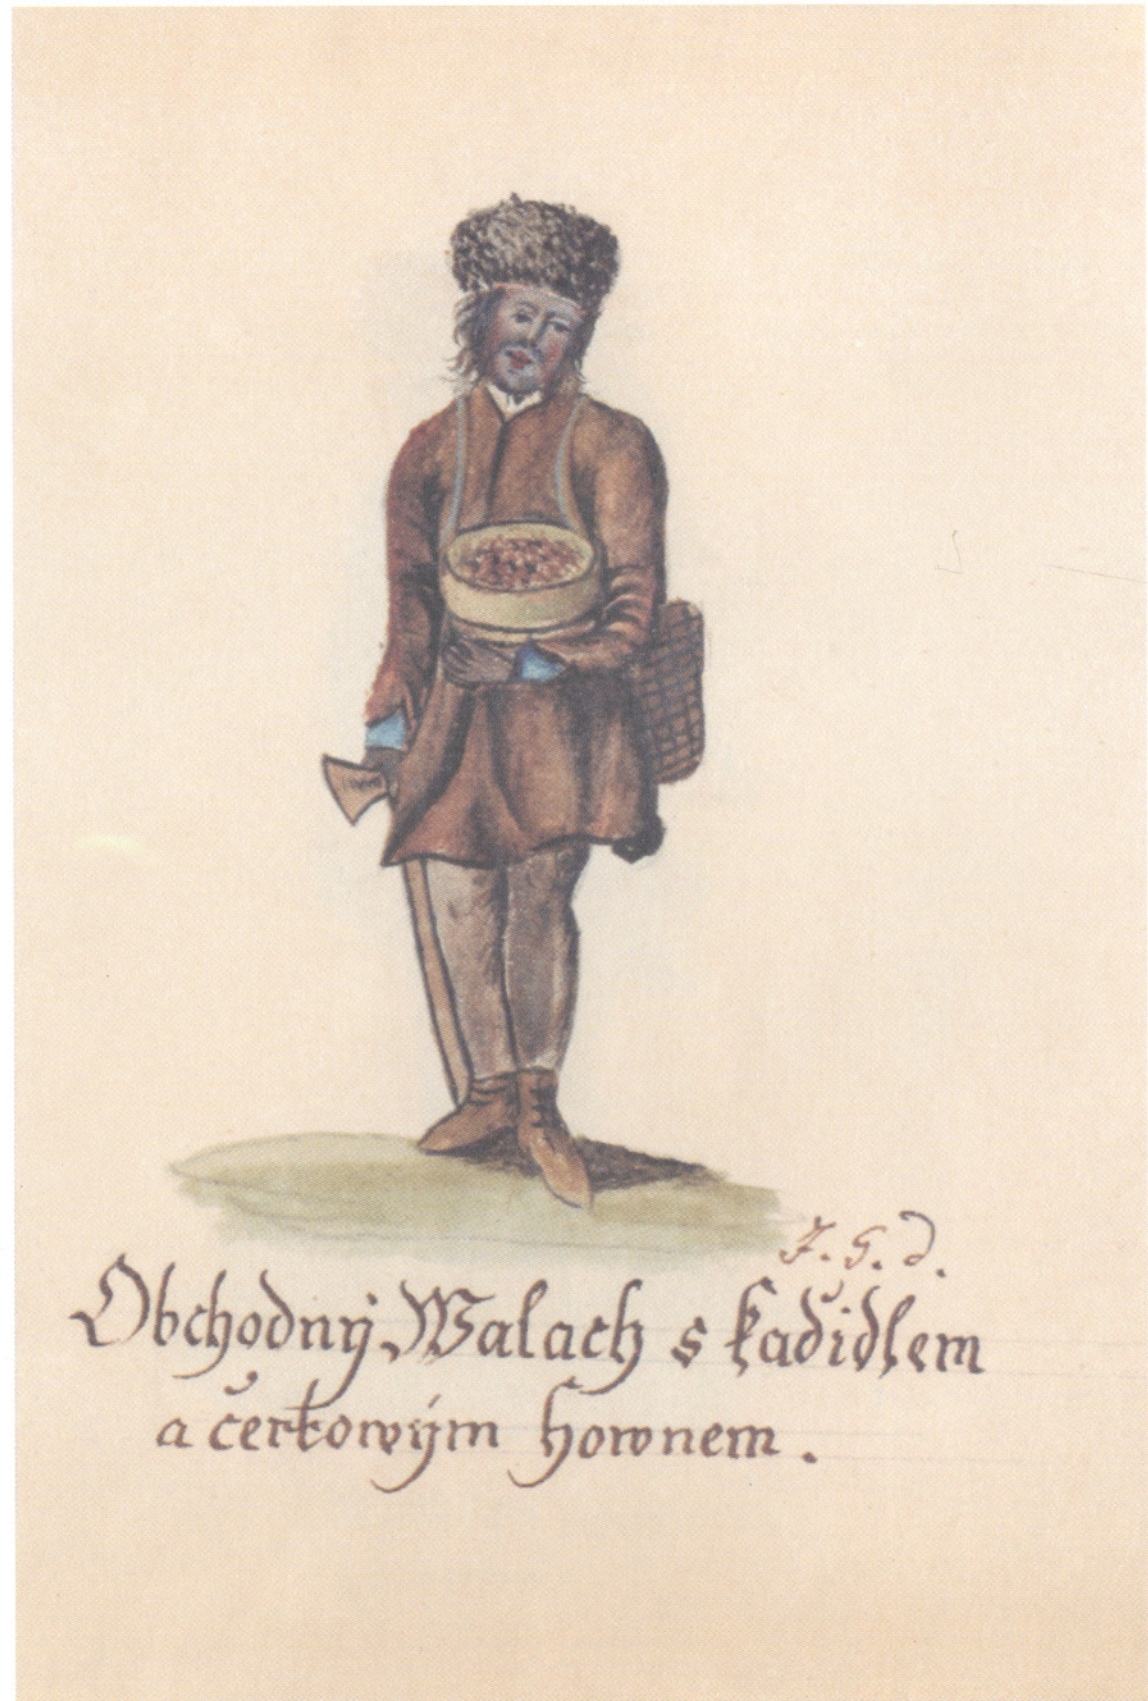 J. G. d.
Obchodný Walach s kadidlem
a čertowým hownem.